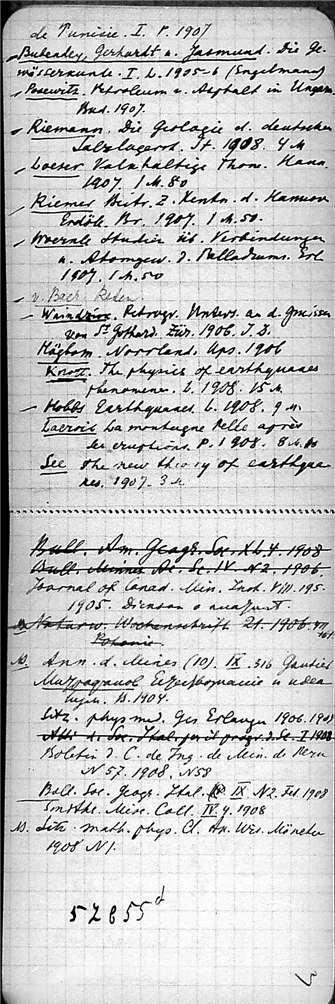 de Tunisie. I. P. 1907
Gerhardt u. Jasmund. Die Ge-
wässerkunde. I. L. 1905-6 (Engelmann)
Posewitz. Petroleum u. Asphalt in Ungarn.
Bud. 1907.
Riemann. Die Geologie d. deutschen
Salzlagerst. St. 1908. 4 M
Loeser Kalkhaltige Thone. Hann.
1907. 1 M. 80
Riemer Beitr. z. Kentn. d. Hannov.
Erdöls. Br. 1907. 1 M. 50.
Woernle Studien üb. Verbindungen
u. Atomgew. d. Palladiums. Erl
1907. 1 M. 50
v. Baer. Reden
Petrogr. Unters. an d. Gneissen
von St Gothard. Zür. 1906. I. D.
Högbom. Norrland. Ups. 1906
Knott. The physics of earthquakes
phenomena. L. 1908. 15 M
Hobbs Earthquakes. L. 1908. 9 M.
Lacroix La montagne Pelée après
ses eruptions. P. 1908. 8 M.
See The new theory of earthqua
kes. 1907. 3 M
Bull. Am. Geogr. Soc. XL. 4. 1908
Bull. Minnes Ac. Sc. IV N 2. 1906.
Journal of Canad. Min. Inst. VIII. 195.
1905.
Naturw. Wochenschrift 21. 1906.
Potonié
Ann. d. Mines (10). IX. 316 Gautier
1904.
Sitz. phys med. Ges Erlangen 1906. 1907
Atti d. Soc. Ital. per il progr. d. Sc. I 1908
Boletin d. C. de Ing. de Min. de Peru
N 57. 1908. N58
Boll. Soc. geogr. Ital. IX N2. Feb 1908
Smiths. Misc. Coll. IV. 4. 1908
Sitz. math. phys. Cl. Ak. Wis. München
1908 N1.